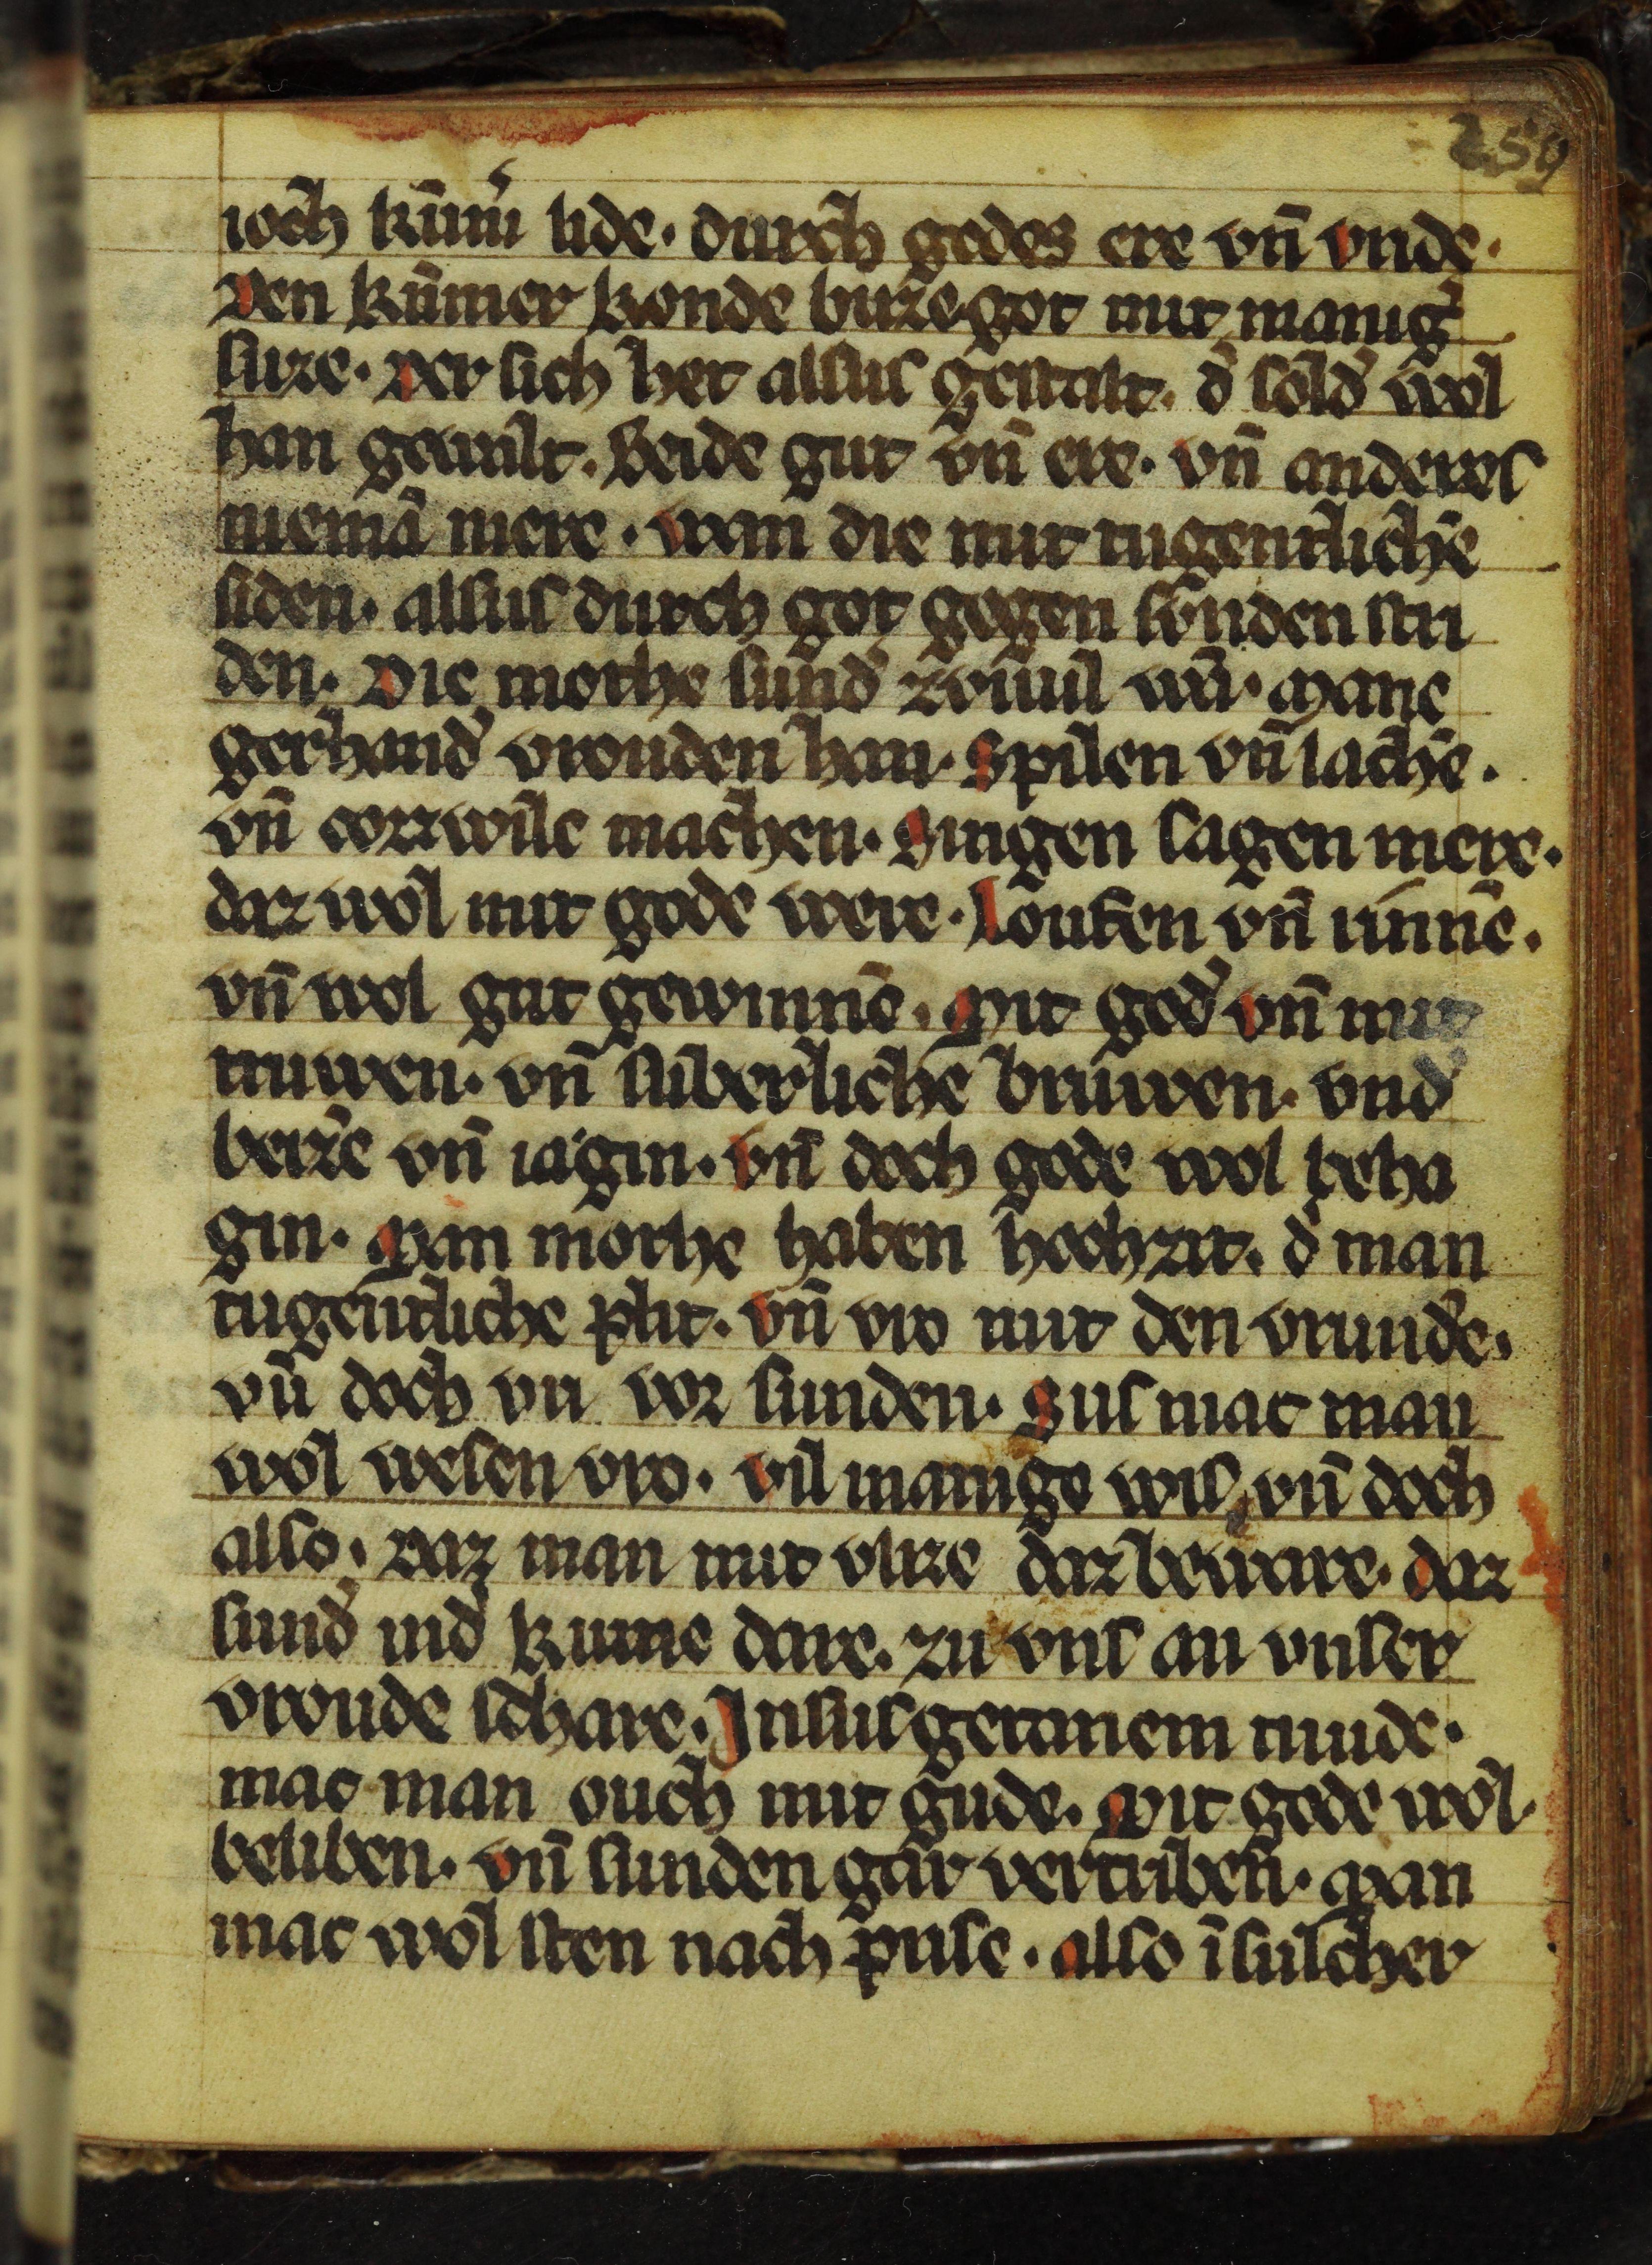 259
ioch kūm̄ lide. durch godes ere vn̄ vride.
Den kūmer konde buze got mit manig͛
suze. Der sich het alsus gestalt. d͛ sold͛ wol
han gewalt. Beide gut vn̄ ere. vn̄ anderes
niemā mere. wan die mit tugentlichē
siden. alsus durch got gegen sunden stri
den. Die mothe sund͛ zwiuil wā. Mane
gerhand͛ vrouden han. Spilen vn̄ lachē.
vn̄ corzwile machen. Singen sagen mere.
daz wol mit gode were. Loufen vn̄ rinnē.
vn̄ wol gut gewinnē. Mit god͛ vn̄ mit
truwen. vn̄ suberliche bruwen. vnd͛
beize vn̄ iagin. vn̄ doch gode wol beha
gin. Man mothe haben hochzit. d͛ man
tugentliche plit. vn̄ vro mit den vrundē.
vn̄ doch vri vor sunden. Sus mac man
wol wesen vro. vil manige wis vn̄ doch
also. Daz man mit vlize daz beware. daz
sund͛ nid͛ kume dare. zu vns an vnser
vroude schare. In sus getanem mude.
mac man ouch mit gude. Mit gode wol
beliben. vn̄ sunden gar vertriben. Man
mac wol sten nach prise. also ī sulcher